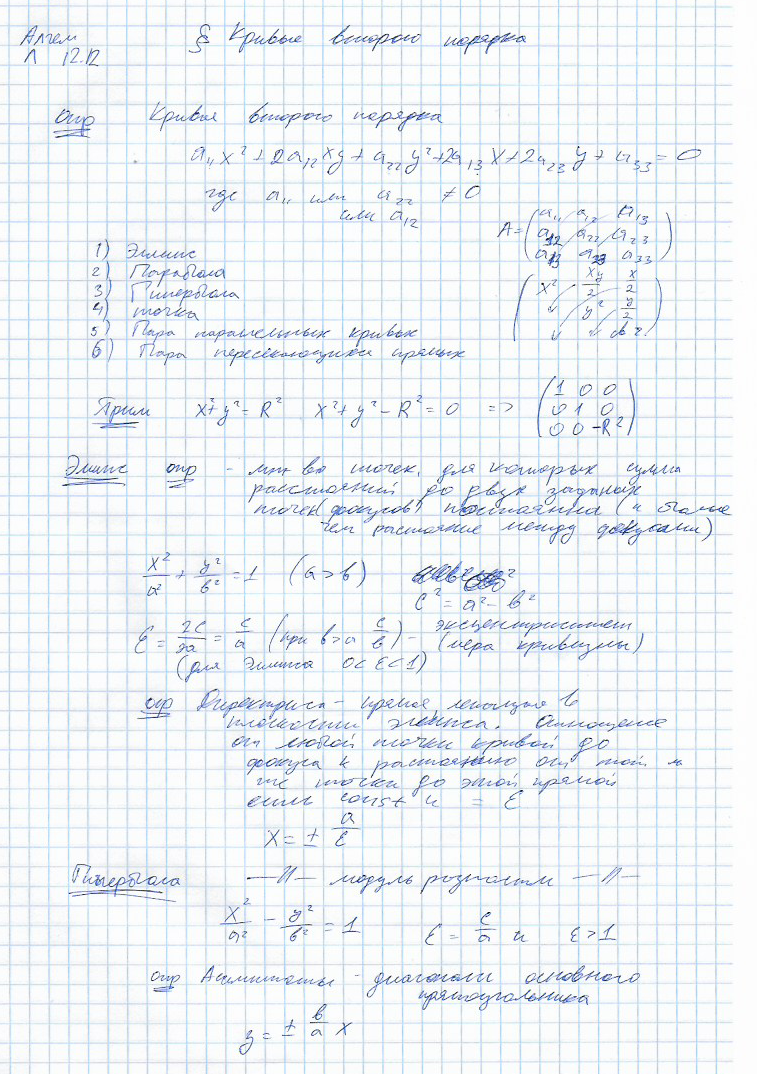 Алгем
Л 12.12
§ Кривые второго порядка
опр Кривые второго порядка
a₁₁x² + 2a₁₂xy + a₂₂y² + 2a₁₃x + 2a₂₃y + a₃₃ = 0
где a₁₁ или a₂₂ ≠ 0
или a₁₂
A = (a₁₁ a₁₂ a₁₃
a₁₂ a₂₂ a₂₃
a₁₃ a₂₃ a₃₃)
1) Эллипс
2) Парабола
3) Гипербола
4) точка
5) Пара параллельных кривых
6) Пара пересекающихся прямых
(x² xy/2 x/2
y² y/2
св ч.)
Прим x² + y² = R² x² + y² - R² = 0 =>
(1 0 0
0 1 0
0 0 -R²)
Элипс опр - мн во точек, для которых сумма
расстояний до двух заданых
точек (фокусов) постоянна (и больше
чем растояние между фокусами)
x²/a² + y²/b² = 1 (a > b)
c² = a² - b²
ε = 2c/2a = c/a (при b>a c/b) - эксцентриситет
(мера кривизны)
(для Элипса 0<ε<1)
опр Директриса - прямая лежащая в
плоскости элипса. Отношение
от любой точки кривой до
фокуса к растоянию от той
же точки до этой прямой
есть const и = ε
x = ± a/ε
Гипербола —//— модуль разности —//—
x²/a² - y²/b² = 1 ε = c/a и ε>1
опр Асимптоты - диагонали основного
прямоугольника
y = ± b/a x